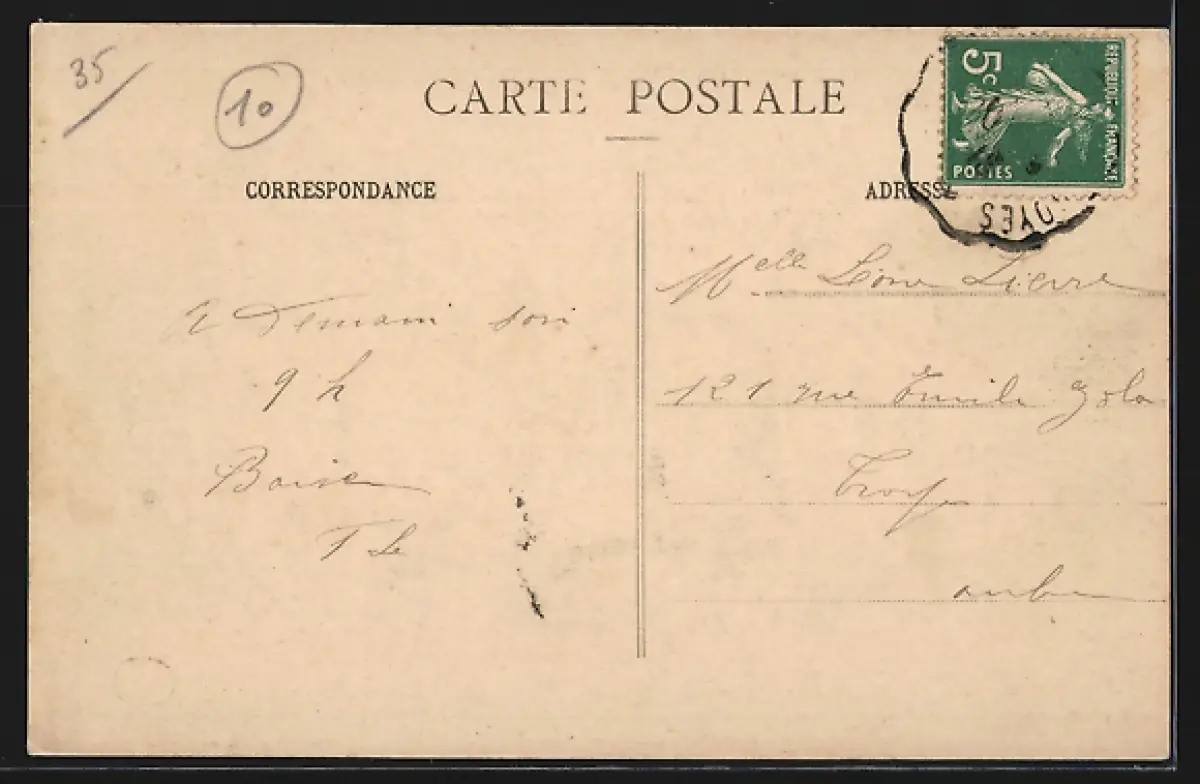 35
10
CARTE POSTALE
CORRESPONDANCE
ADRESSE
5c
POSTES
REPUBLIQUE FRANÇAISE
OYES
A Demain soir
9 h
M elle
121 rue Emile Zola
Troyes
aube